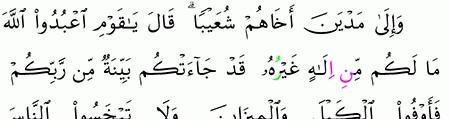 وَإِلَىٰ مَدْيَنَ أَخَاهُمْ شُعَيْبًا ۗ قَالَ يَـٰقَوْمِ ٱعْبُدُوا۟ ٱللَّهَ
مَا لَكُم مِّنْ إِلَـٰهٍ غَيْرُهُۥ قَدْ جَآءَتْكُم بَيِّنَةٌ مِّن رَّبِّكُمْ
فَأَوْفُوا۟ ٱلْكَيْلَ وَٱلْمِيزَانَ وَلَا تَبْخَسُوا۟ ٱلنَّاسَ